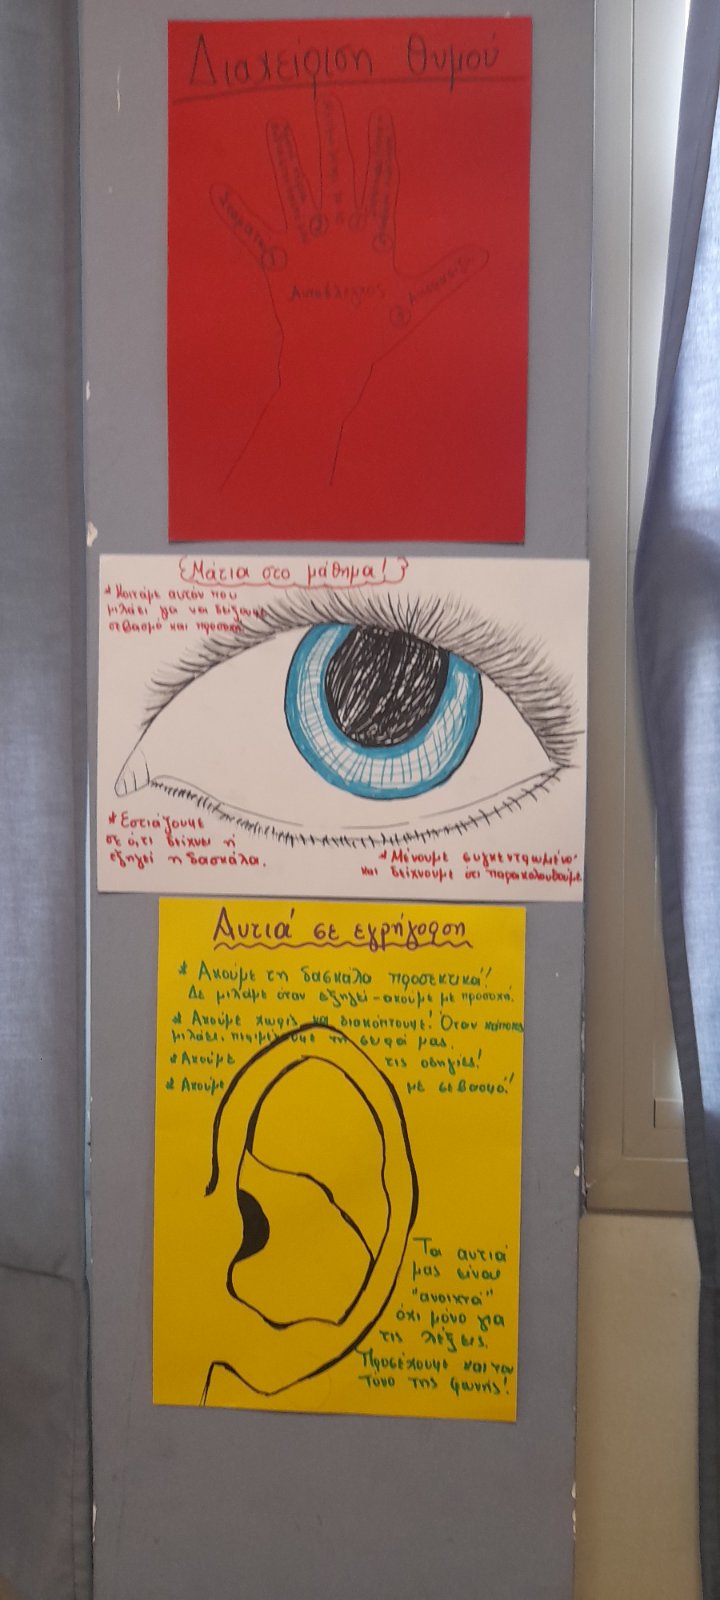 Διαχείριση θυμού
Σταματώ
1
2
Αυτοέλεγχος
5
{Μάτια στο μάθημα!}
* Κοιτάμε αυτόν που
μιλάει για να δείξουμε
σεβασμό και προσοχή.
* Εστιάζουμε
σε ό,τι δείχνει ή
εξηγεί η δασκάλα.
* Μένουμε συγκεντρωμένοι
και δείχνουμε ότι παρακολουθούμε
Αυτιά σε εγρήγορση
* Ακούμε τη δασκάλα προσεκτικά!
Δε μιλάμε όταν εξηγεί - ακούμε με προσοχή.
* Ακούμε χωρίς να διακόπτουμε! Όταν κάποιος
μιλάει, περιμένουμε τη σειρά μας.
* Ακούμε τις οδηγίες!
* Ακούμε με σεβασμό!
Τα αυτιά
μας είναι
"ανοιχτά"
όχι μόνο για
τις λέξεις.
Προσέχουμε και τον
τόνο της φωνής!